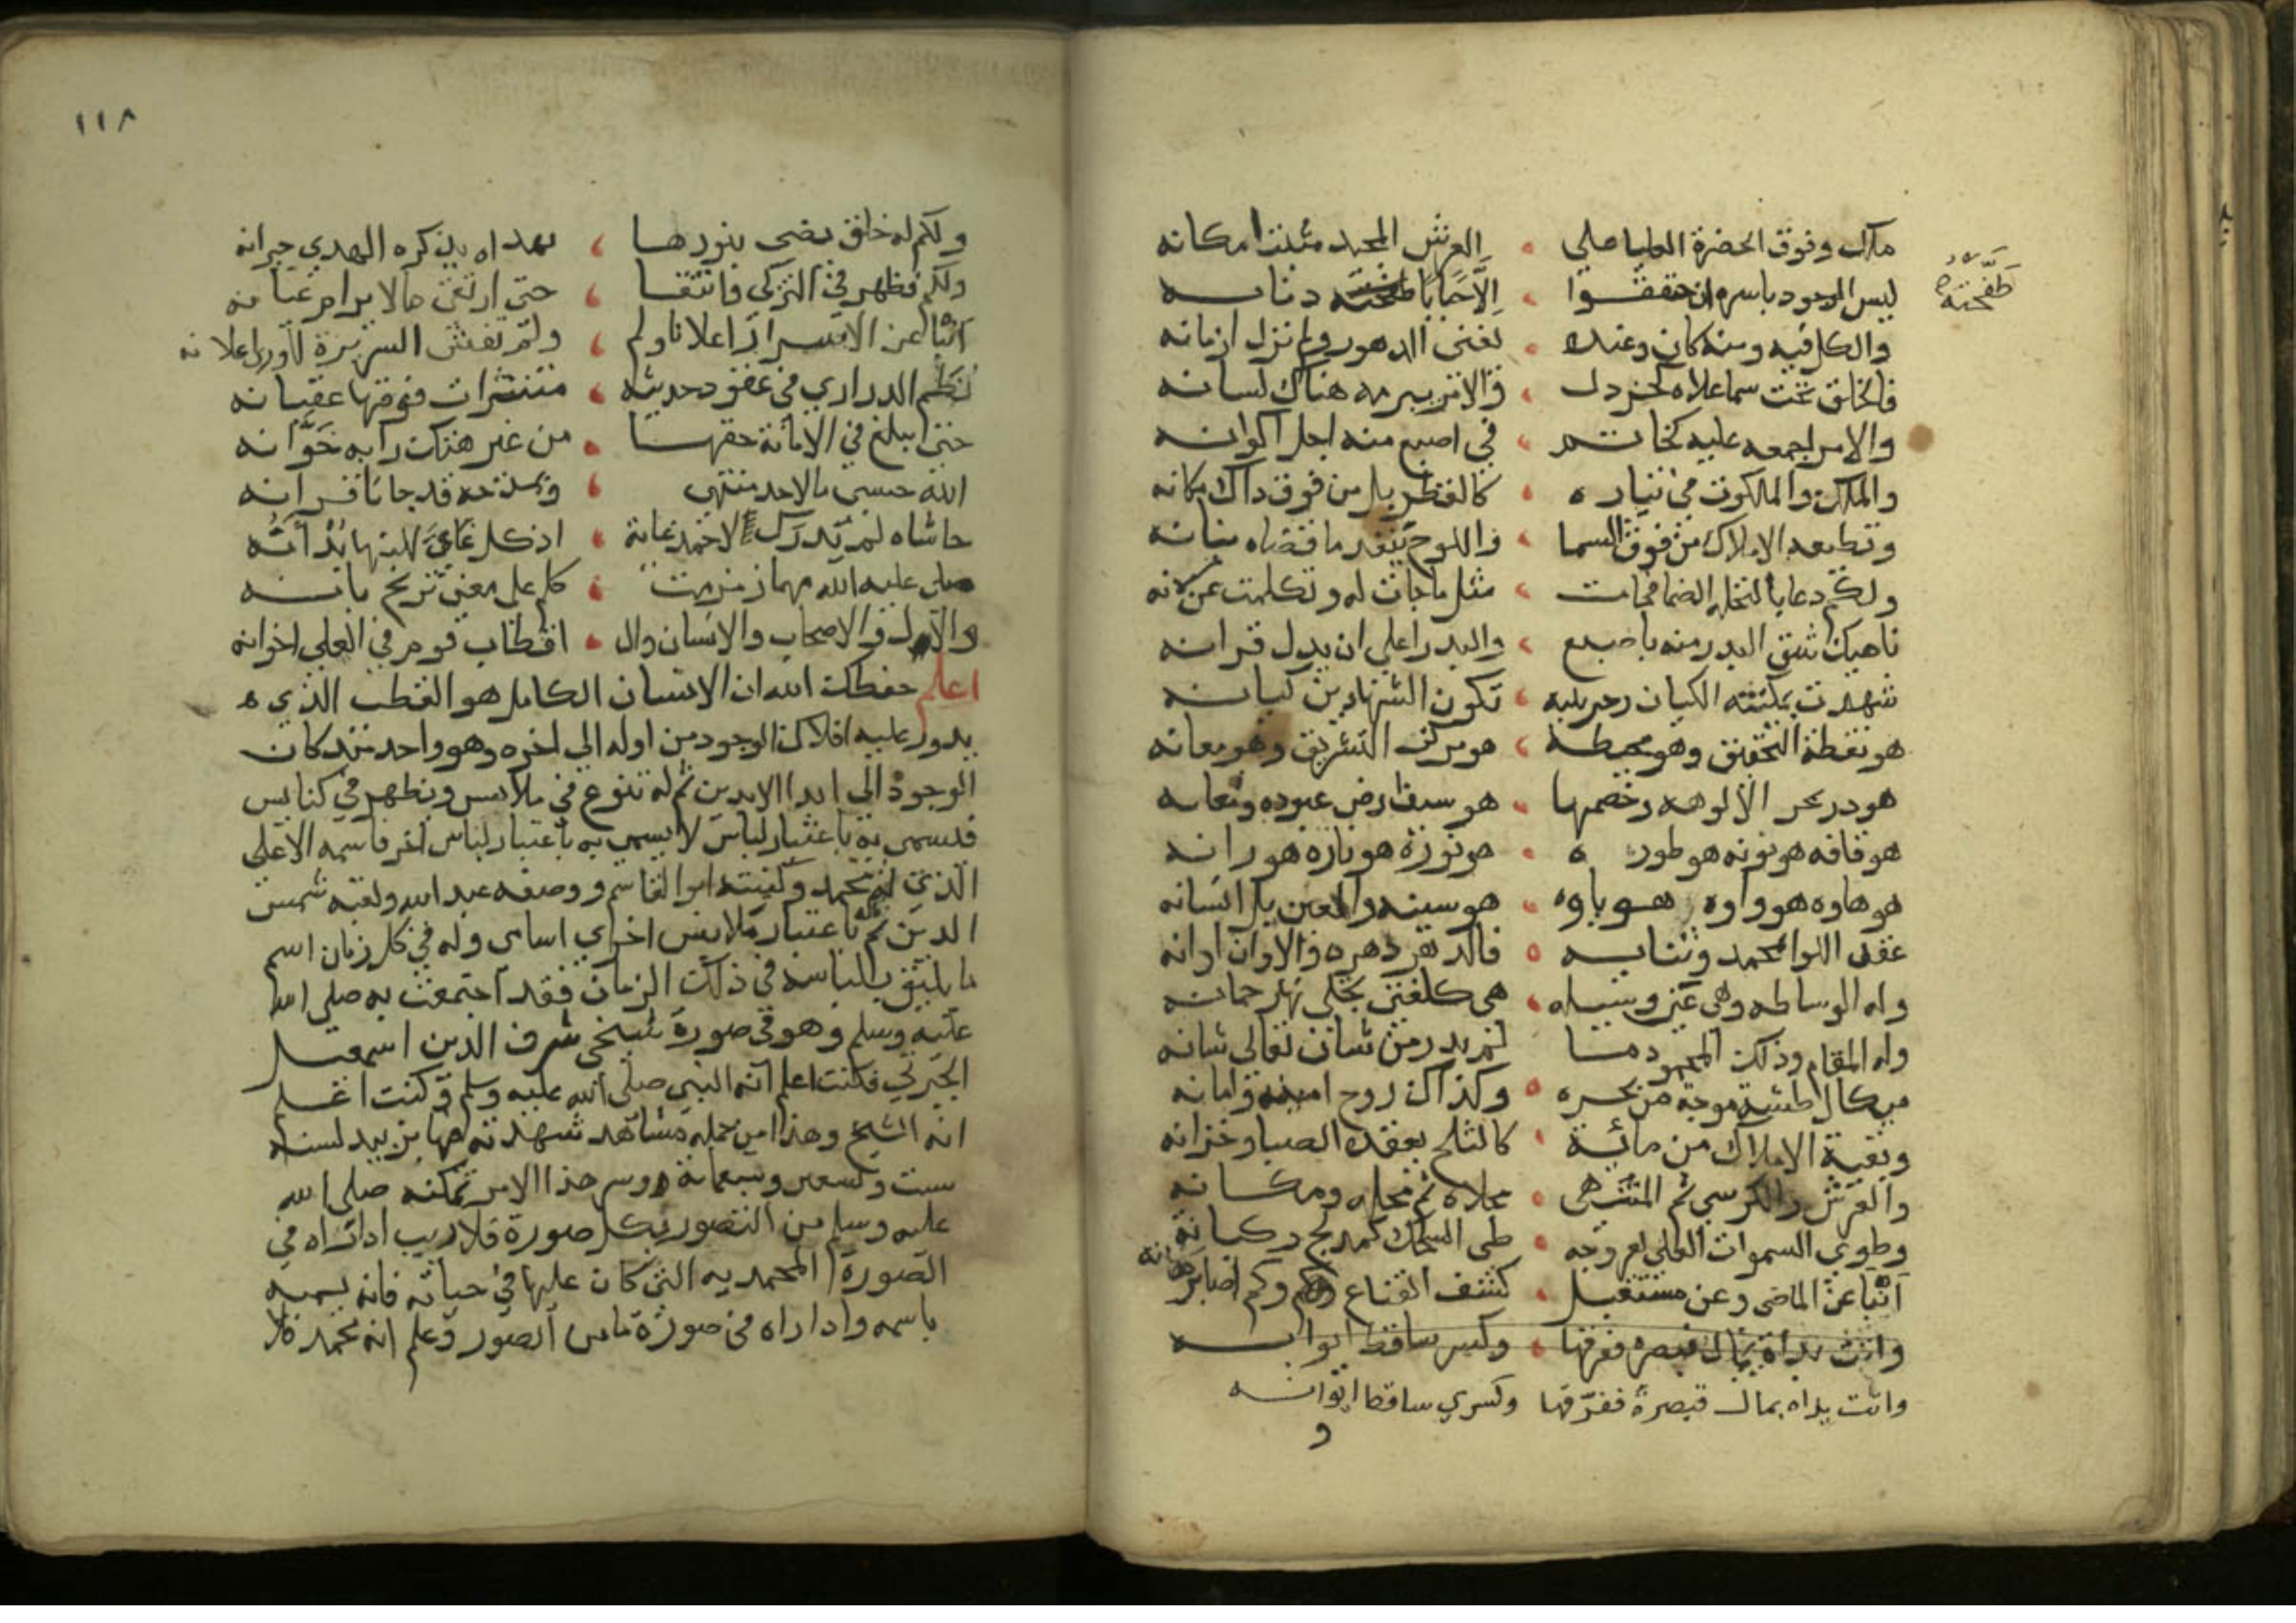 ملك وفوق الحضرة العليا على العرش المجيد مثبت امكانه
طفحته
ليس الوجود باسره ان حققوا الا حبابا طفحته دنانه
والكل فيه ومنه كان وعنده تفنى الدهور ولم تزل ازمانه
فالخلق تحت سما علاه كخردل والامر يبرمه هناك لسانه
والامر اجمعه عليه كخاتم في اصبع منه اجل اكوانه
والملك والملكوت في تياره كالقطر بل من فوق ذاك مكانه
وتطيعه الاملاك من فوق السما واللوح ينفد ما قضاه بنانه
ولكم دعا بالنخلة الصما فجات مثل ما جات له وتكلمت غزلانه
ناهيك شق البدر منه باصبع والبدر اعلى ان يدل قرانه
شهدت بمكنته الكيان وخير بينة تكون الشهادين كيانه
هو نقطة التحقيق وهو محيطه هو مركز التشريق وهو معانه
هو در بحر الالوهه وخضمها هو سيف ارض عبوده وثعانه
هو قافه هو نونه هو طوره هو نوره هو ناره هو رانه
هو هاوه هو واوه هو باوه هو سينه والعين بل انسانه
عقد اللوا لمحمد وثنايه فالدهر دهره والاوان اوانه
وله الوساطه وهي عين وسيله هي كلفتى يجلى بها رحمانه
وله المقام وذلك المحمود ما لم يدر من شان تعالى شانه
ميكال طشة موجة من بحره وكذاك روح امينه وامانه
وبقية الاملاك من مائية كالثلج يعقده الصبا وخزانه
والعرش والكرسي ثم المنتهى مجلاه ثم محله ومكانه
وطوى السموات العلى بعروجه طي السجل كمدلج ركبانه
انبا عن الماضي وعن مستقبل كشف القناع وكم اضا برهانه
واتت يداه بمال قيصره ففرقها وكسر ساقط ايوانه
واتت يداه بمال قيصرة ففرّقها وكسري ساقط ايوانه
و
١١٨
ولكم له خلق يضى بنورها بهداه يذكره المهدي جيرانه
ولكم تطهر في التزكى وانتقا حتى ارتقى مالا يرام عيانه
انبا عن الاسرار اعلانا ولم يفش السريرة للورى اعلانه
نظم الدراري في عقود حديثه متنثرات فوقها عقيانه
حتى ابلغ في الامانة حقها من غير هتك رابه خوانه
الله حسبي ما لاحمد منتهى وبمدحه قد جانا قرانه
حاشاه لم تدرك لاحمد غاية اذ كل غايات النها بدآنه
صلى عليه الله مهما زمزمت كلم على معنى تريح بانه
والآل والاصحاب والانسان وال اقطاب قوم في العلى اخوانه
اعلم حفظك الله ان الانسان الكامل هو القطب الذي ه
يدور عليه افلاك الوجود من اوله الى اخره وهو واحد منذ كان
الوجود الى ابد الابدين ثم له تنوع في ملابس ويظهر في كنايس
فيسمى به باعتبار لباس لا يسمى به باعتبار لباس اخر فاسمه الاعلى
الذي له محمد وكنيته ابو القاسم ووصفه عبد الله ولقبه شمس
الدين ثم له باعتبار ملابس اخرى اسامى وله في كل زمان اسم
ما يليق بلباسه في ذلك الزمان فقد اجتمعت به صلى الله
عليه وسلم وهو في صورة شيخى شرف الدين اسمعيل
الجبرتي فكنت اعلم انه النبي صلى الله عليه وسلم وكنت اعلم
انه الشيخ وهذا من جملة مشاهد شهدته فيها بزبيد لسنه
ست وتسعين وسبعمائة وسر هذا الامر تمكنه صلى الله
عليه وسلم من التصور بكل صورة فلاديب اذا راه في
الصورة المحمديه التى كان عليها في حياته فانه يسميه
باسمه واذا راه في صورة ما من الصور وعلم انه محمد فلا